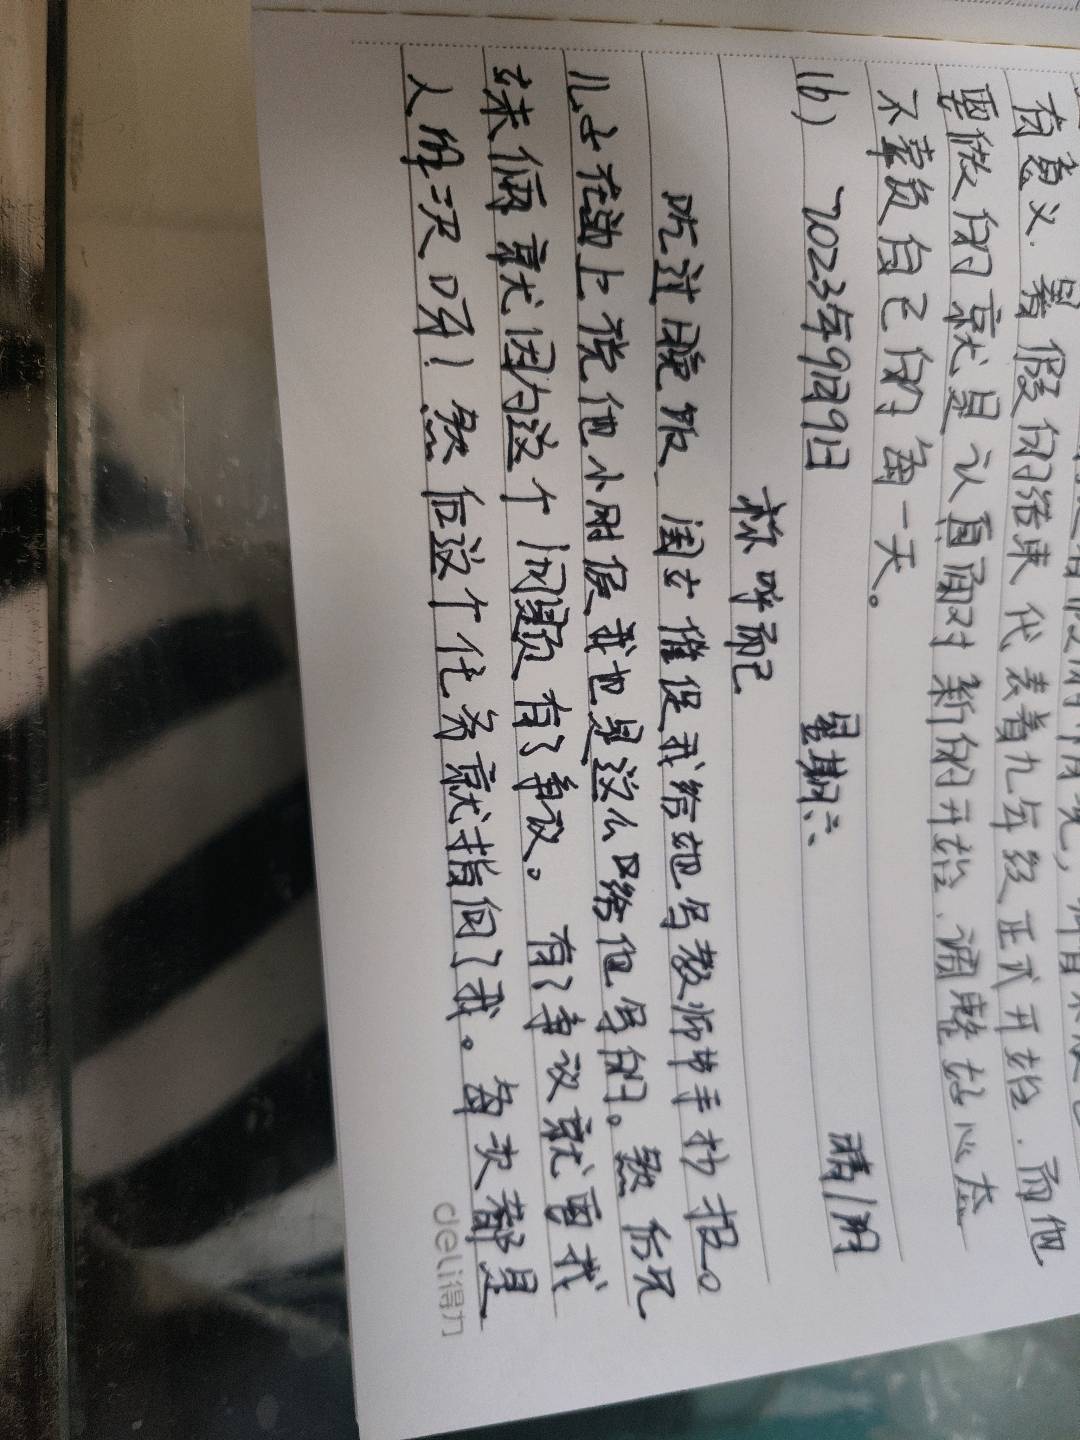 有意义。暑假的结束代表着九年级正式开始.而他
要做的就是认真面对新的开始、调整好心态
不辜负自己的每一天。
16) 2023年9月9日 星期六 晴/阴
称呼而已
吃过晚饭、闺女催促我给她写教师节手抄报。
儿子在边上说他小时侯我也是这么给他写的。然后兄
妹俩就因为这个问题有了争议。有了争议就要我
人解决呀!然后这个任务就指向了我。每次都是
deli得力